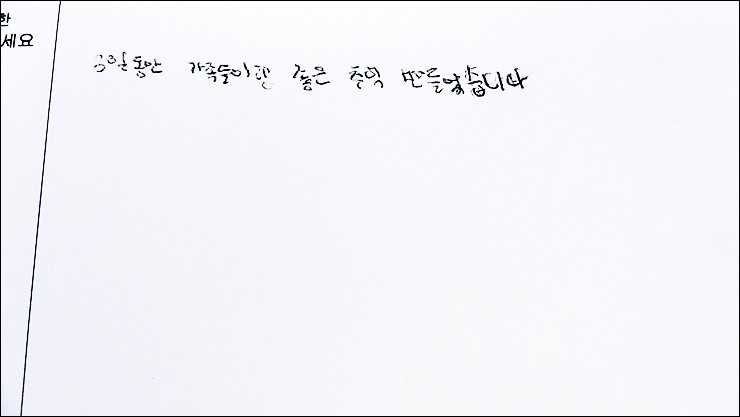 한
세요
동안 가족들이랑 좋은 추억 만들었습니다